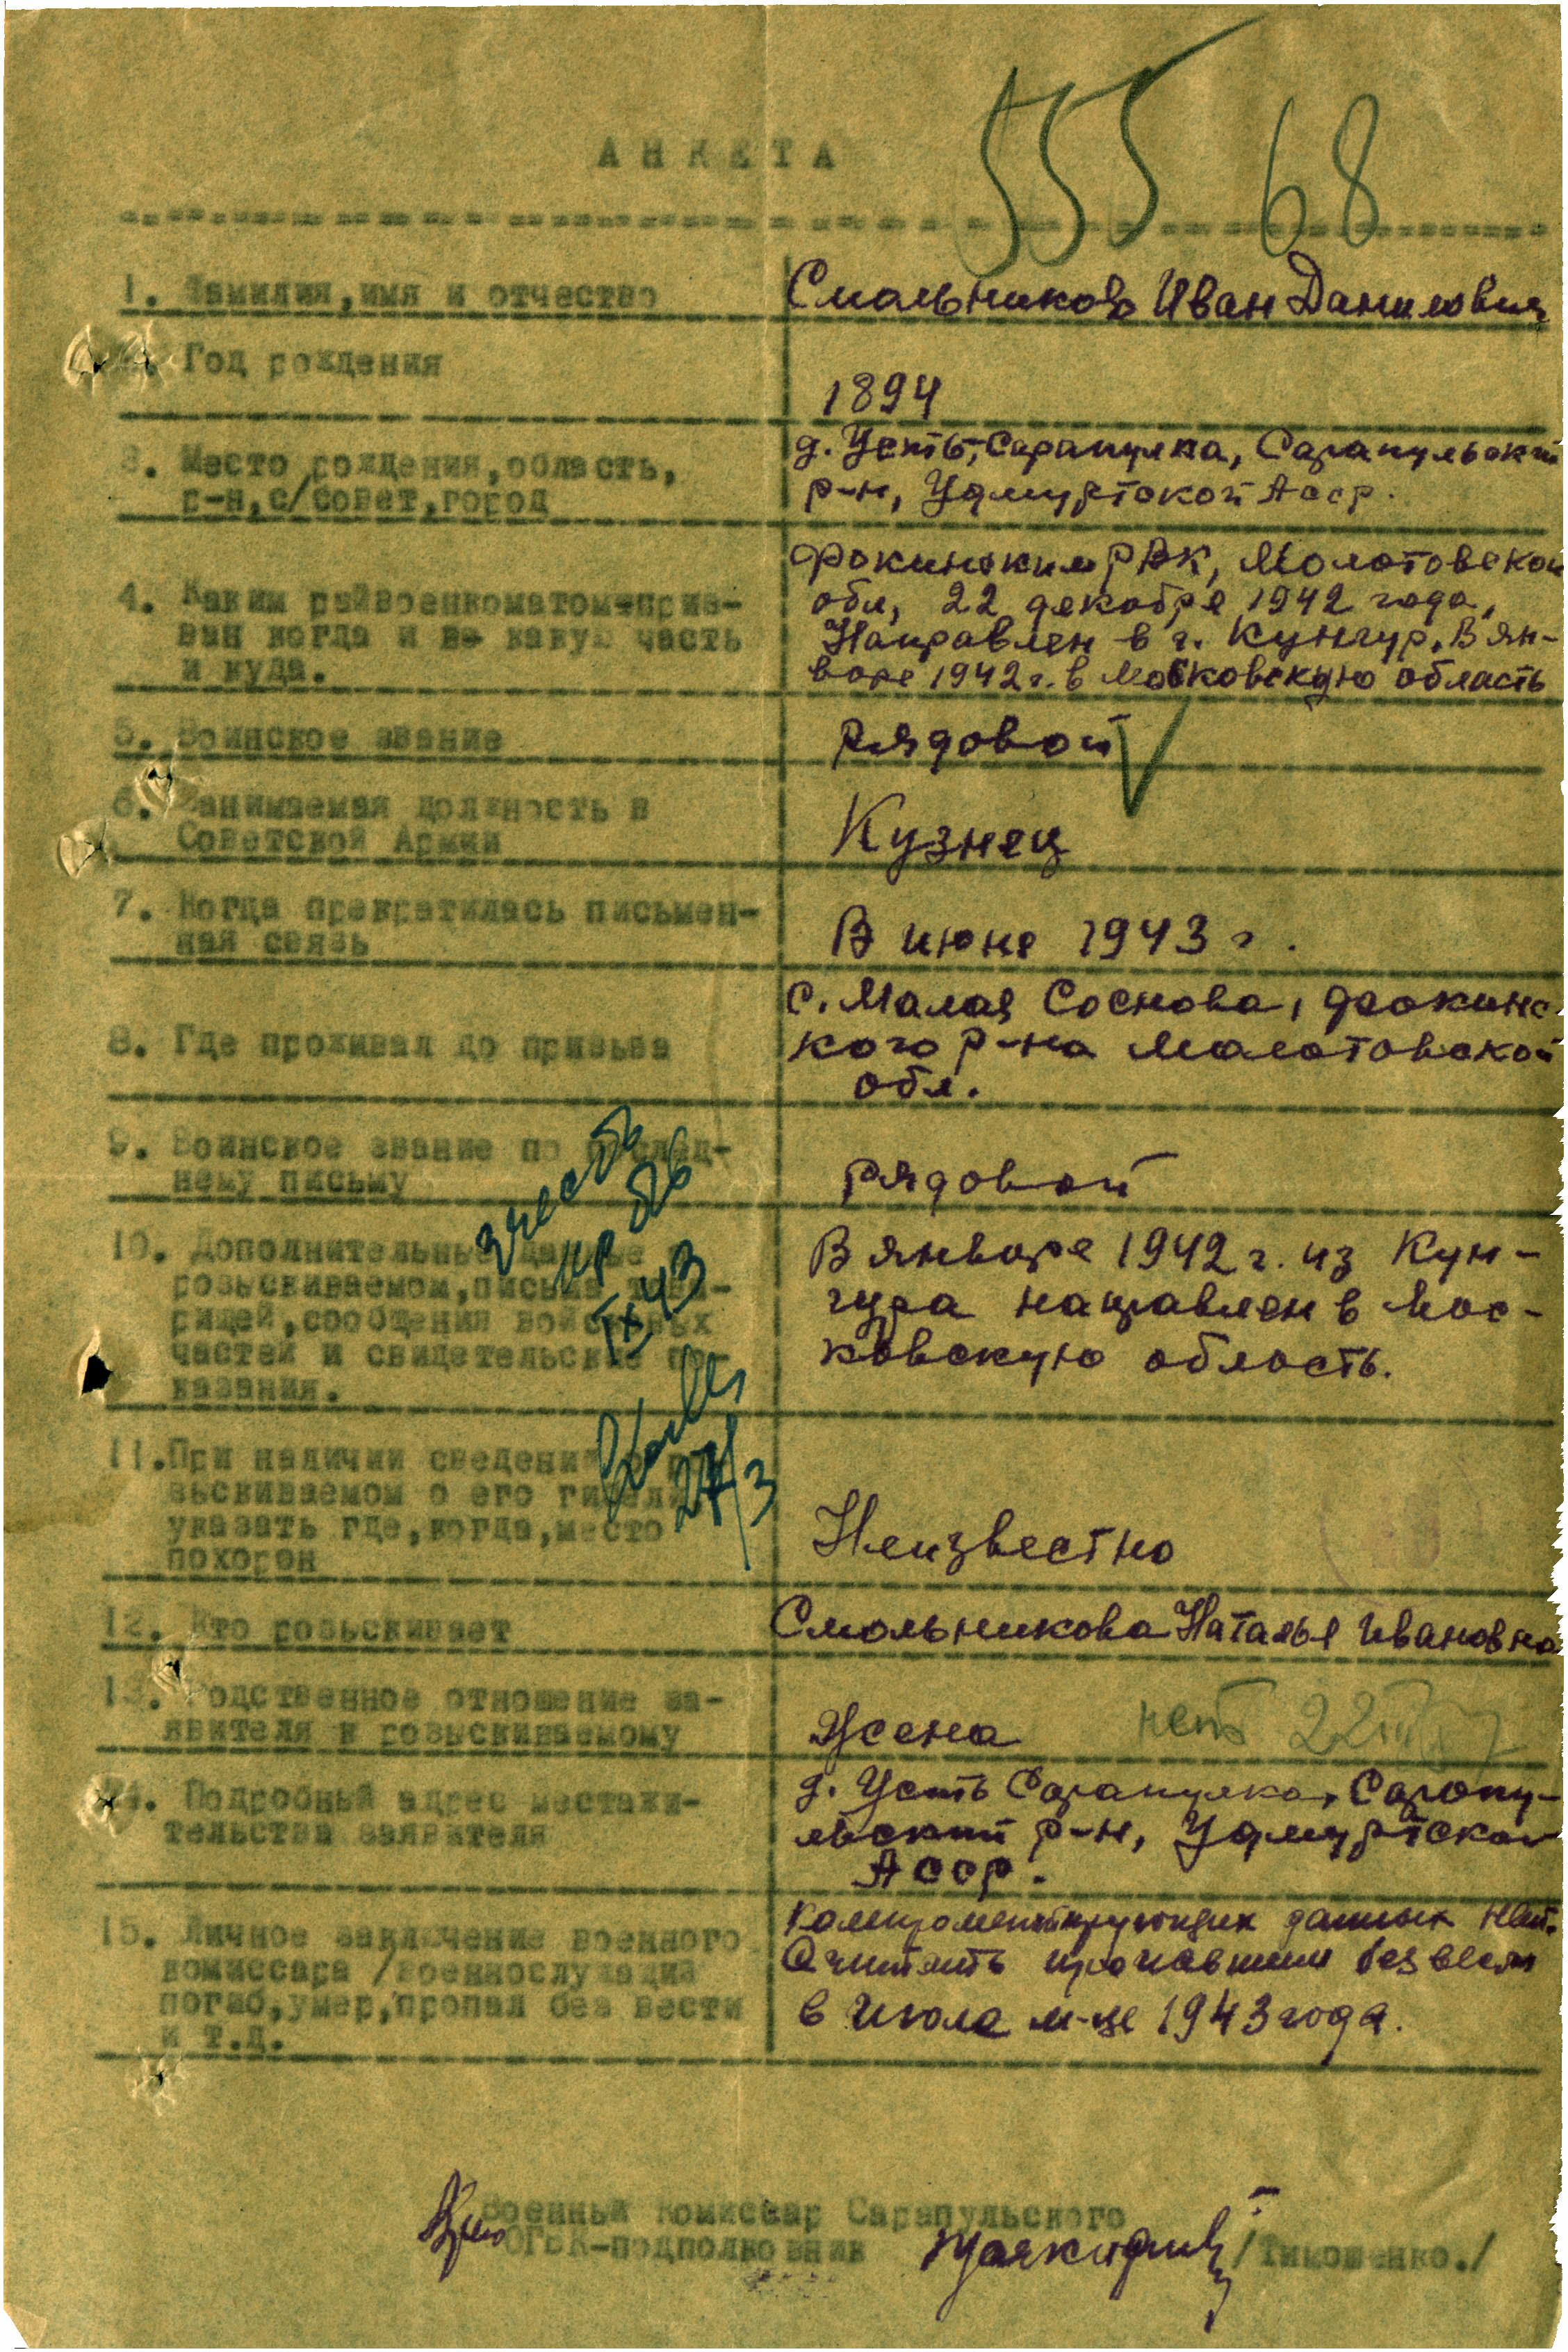 555 68
АНКЕТА
1. Фамилия, имя и отчество
Смольников Иван Данилович
Год рождения
1894
3. Место рождения, область,
р-н, с/совет, город
д. Усть-Сарапулка, Сарапульский
р-н, Удмуртской Асср.
4. Каким райвоенкоматом приз-
ван когда и в какую часть
и куда.
Фокинским РВК, Молотовской
обл, 22 декабря 1942 года,
Направлен в г. Кунгур. В ян-
варе 1942 г. в Московскую область
5. Воинское звание
Рядовой
6. Занимаемая должность в
Советской Армии
Кузнец
7. Когда прекратилась письмен-
ная связь
В июне 1943 г.
8. Где проживал до призыва
с. Малая Соснова, Фокинс-
кого р-на Молотовской
обл.
9. Воинское звание по послед-
нему письму
Рядовой
10. Дополнительные данные о
розыскиваемом, письма това-
рищей, сообщения войсковых
частей и свидетельские по-
казания.
В январе 1942 г. из Кун-
гура направлен в Мос-
ковскую область.
учесть
пр бв
IX 43
27/3
11. При наличии сведений о ро-
зыскиваемом о его гибели
указать где, когда, место
похорон
Неизвестно
12. Кто розыскивает
Смольникова Наталья Ивановна
13. Родственное отношение за-
явителя к розыскиваемому
Жена
нет 22 III
14. Подробный адрес местажи-
тельства заявителя
д. Усть Сарапулка, Сарапу-
льский р-н, Удмуртской
Асср.
15. Личное заключение военного
комиссара /военнослужащий
погиб, умер, пропал без вести
и т.д.
Компрометирующих данных нет.
Считать пропавшим без вести
в Июле м-це 1943 года.
Военный Комиссар Сарапульского
ОГВК-подполковник /Тимошенко./